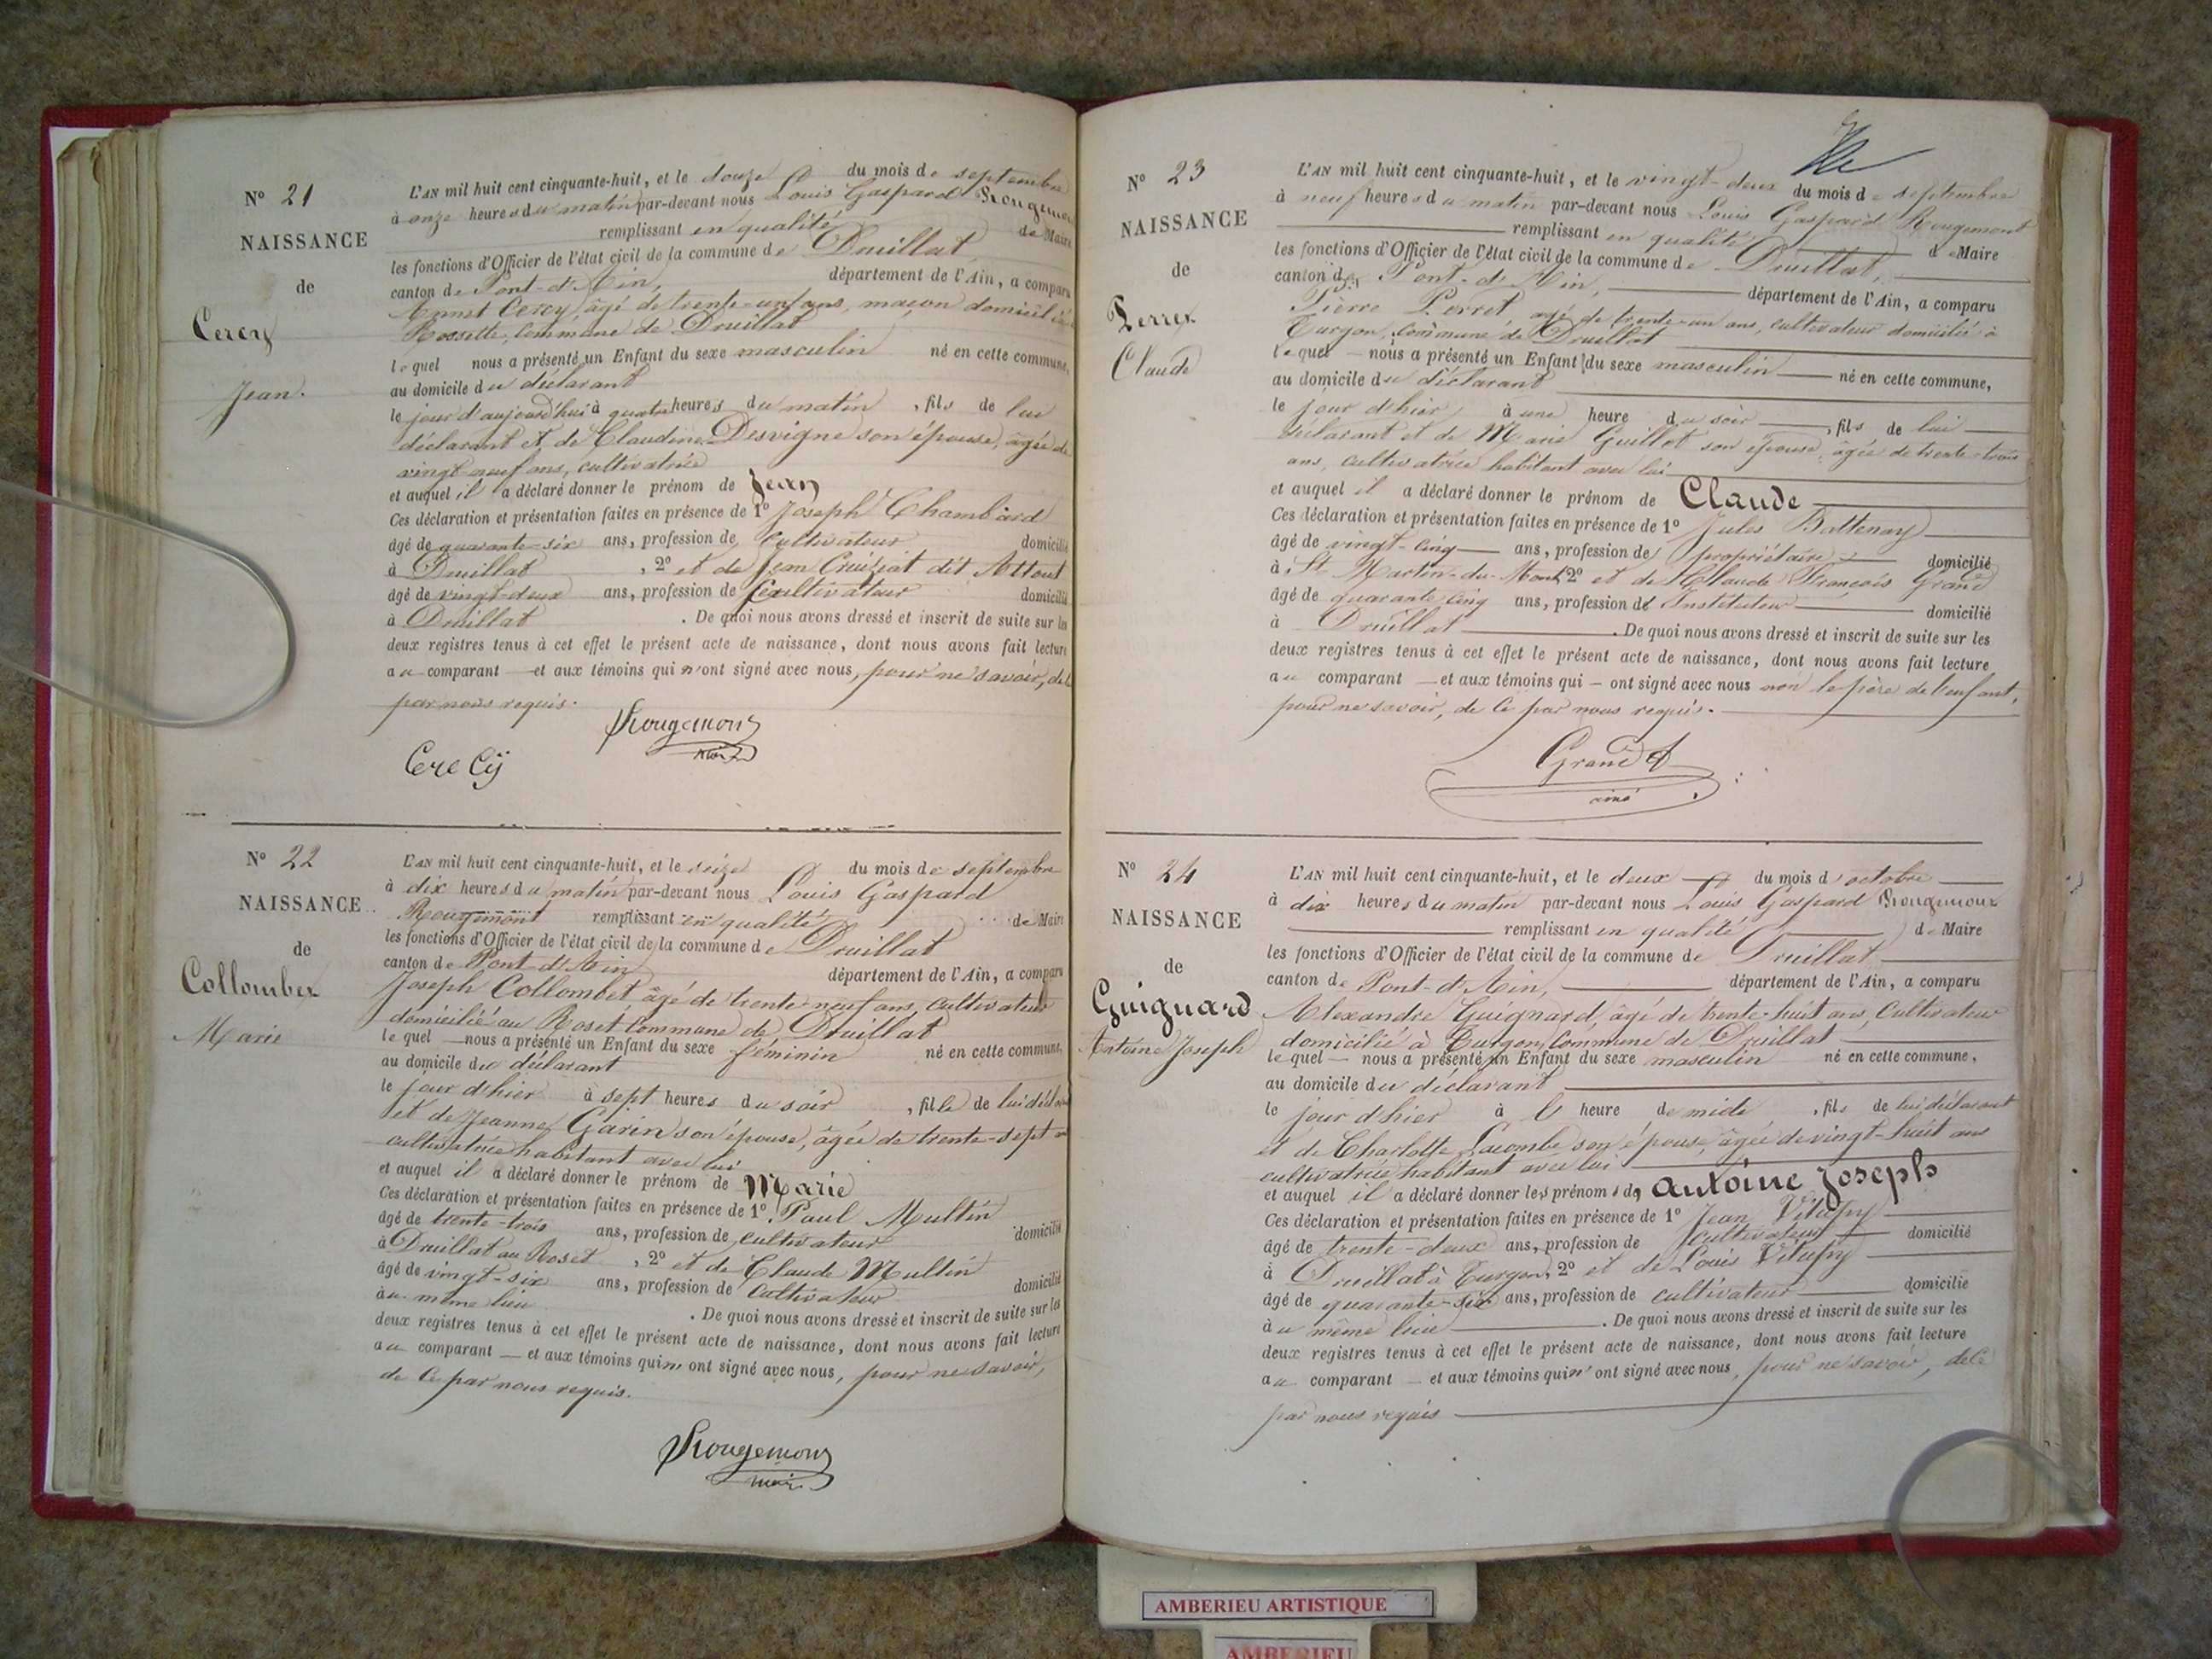 N° 21
NAISSANCE
de
Cercy
Jean.
L'AN mil huit cent cinquante-huit, et le douze du mois de septembre
à onze heures du matin par-devant nous Louis Gaspard Rougemont
remplissant en qualité de Maire
les fonctions d'Officier de l'état civil de la commune de Druillat,
canton de Pont-d'Ain, département de l'Ain, a comparu
Cercy, âgé de trente-un ans, maçon domicilié
Rossette, commune de Druillat
lequel nous a présenté un Enfant du sexe masculin né en cette commune,
au domicile du déclarant
le jour d'aujourd'hui à quatre heures du matin, fils de lui
déclarant et de Claudine Desvigne son épouse, âgée de
vingt-neuf ans, cultivatrice
et auquel il a déclaré donner le prénom de Jean
Ces déclaration et présentation faites en présence de 1° Joseph Chambard
âgé de quarante-six ans, profession de Cultivateur domicilié
à Druillat, 2° et de Jean Cruiziat dit Attout
âgé de vingt-deux ans, profession de Cultivateur domicilié
à Druillat. De quoi nous avons dressé et inscrit de suite sur les
deux registres tenus à cet effet le présent acte de naissance, dont nous avons fait lecture
au comparant et aux témoins qui n'ont signé avec nous, pour ne savoir, de
par nous requis.
Rougemont
maire
CereCÿ
N° 22
NAISSANCE
de
Collombet
Marie
L'AN mil huit cent cinquante-huit, et le seize du mois de septembre
à dix heures du matin par-devant nous Louis Gaspard
Rougemont remplissant en qualité de Maire
les fonctions d'Officier de l'état civil de la commune de Druillat
canton de Pont-d'Ain département de l'Ain, a comparu
Joseph Collombet âgé de trente-neuf ans, cultivateur
domicilié au Roset Commune de Druillat
lequel nous a présenté un Enfant du sexe féminin né en cette commune,
au domicile du déclarant
le jour d'hier à sept heures du soir, fille de lui déclarant
et de Jeanne Garin son épouse, âgée de trente-sept ans
cultivatrice habitant avec lui
et auquel il a déclaré donner le prénom de Marie
Ces déclaration et présentation faites en présence de 1° Paul Multin
âgé de trente-trois ans, profession de cultivateur domicilié
à Druillat au Roset, 2° et de Claude Multin
âgé de vingt-six ans, profession de Cultivateur domicilié
au même lieu. De quoi nous avons dressé et inscrit de suite sur les
deux registres tenus à cet effet le présent acte de naissance, dont nous avons fait lecture
au comparant et aux témoins qui n'ont signé avec nous, pour ne savoir,
de ce par nous requis.
Rougemont
maire
N° 23
NAISSANCE
de
Perret
Claude
L'AN mil huit cent cinquante-huit, et le vingt-deux du mois de septembre
à neuf heures du matin par-devant nous Louis Gaspard Rougemont
remplissant en qualité de Maire
les fonctions d'Officier de l'état civil de la commune de Druillat,
canton de Pont-d'Ain, département de l'Ain, a comparu
Pierre Perret, âgé de trente-un ans, cultivateur domicilié à
Turgon, commune de Druillat
lequel nous a présenté un Enfant du sexe masculin né en cette commune,
au domicile du déclarant
le jour d'hier, à une heure du soir, fils de lui
déclarant et de Marie Guillot son épouse, âgée de trente-trois
ans, cultivatrice habitant avec lui
et auquel il a déclaré donner le prénom de Claude
Ces déclaration et présentation faites en présence de 1° Jules Battenay
âgé de vingt-cinq ans, profession de propriétaire domicilié
à St Martin-du-Mont 2° et de Claude François Grand
âgé de quarante cinq ans, profession de Instituteur domicilié
à Druillat. De quoi nous avons dressé et inscrit de suite sur les
deux registres tenus à cet effet le présent acte de naissance, dont nous avons fait lecture
au comparant et aux témoins qui ont signé avec nous non le père de l'enfant,
pour ne savoir, de ce par nous requis.
Grand
ainé
N° 24
NAISSANCE
de
Guignard
Antoine Joseph
L'AN mil huit cent cinquante-huit, et le deux du mois d'octobre
à dix heures du matin par-devant nous Louis Gaspard Rougemont
remplissant en qualité de Maire
les fonctions d'Officier de l'état civil de la commune de Druillat
canton de Pont-d'Ain, département de l'Ain, a comparu
Alexandre Guignard, âgé de trente-huit ans, Cultivateur
domicilié à Turgon, Commune de Druillat
lequel nous a présenté un Enfant du sexe masculin né en cette commune,
au domicile du déclarant
le jour d'hier à l' heure de midi, fils de lui déclarant
et de Charlotte Lacombe son épouse, âgée de vingt-huit ans
cultivatrice habitant avec lui
et auquel il a déclaré donner les prénoms de Antoine Joseph
Ces déclaration et présentation faites en présence de 1° Jean Vitupry
âgé de trente-deux ans, profession de cultivateur domicilié
à Druillat à Turgon, 2° et de Louis Vitupry
âgé de quarante-six ans, profession de cultivateur domicilié
au même lieu. De quoi nous avons dressé et inscrit de suite sur les
deux registres tenus à cet effet le présent acte de naissance, dont nous avons fait lecture
au comparant et aux témoins qui n'ont signé avec nous, pour ne savoir, de ce
par nous requis
AMBERIEU ARTISTIQUE
AMBERIEU